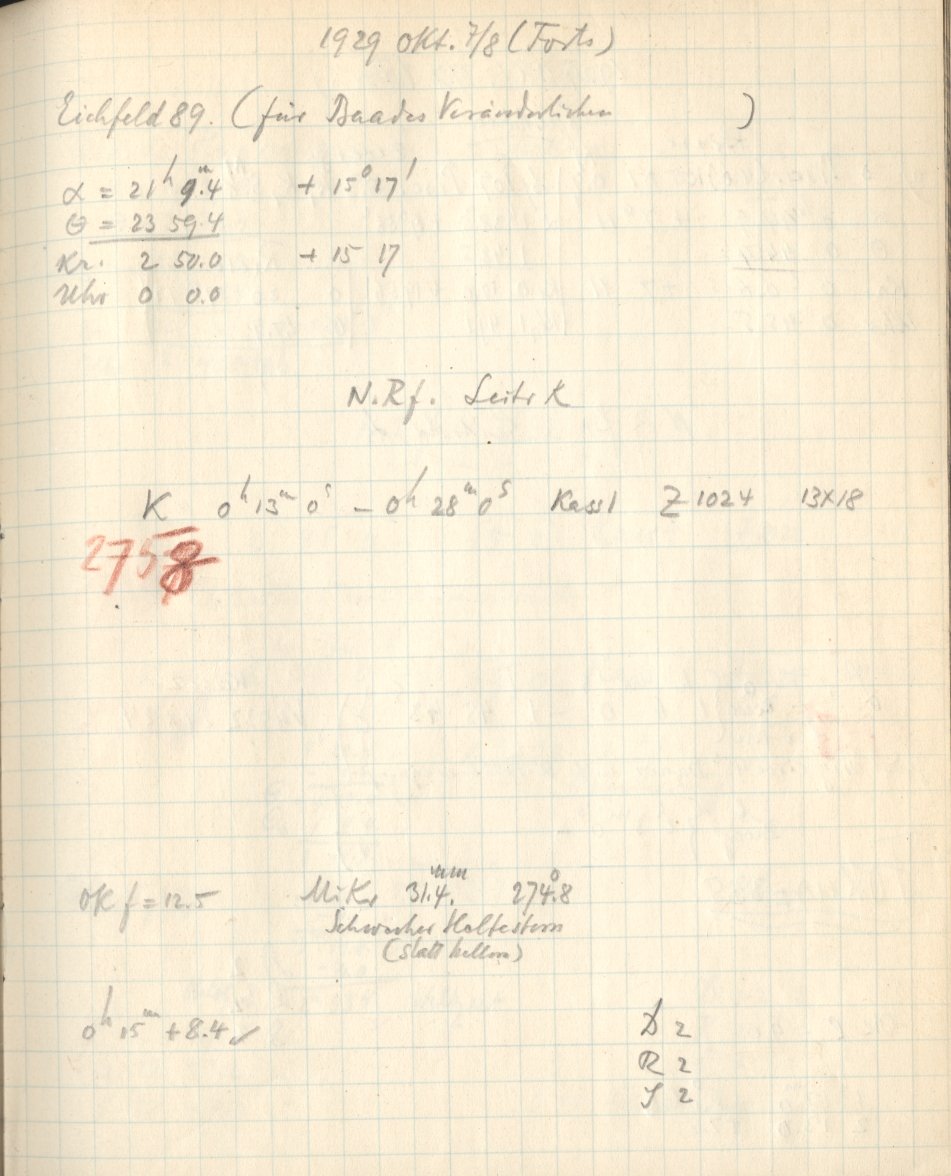 1929 Okt. 7/8 (Forts)
Eichfeld 89. (für Baades Veränderlichen )
α = 21ʰ 9ᵐ.4 + 15° 17'
Θ = 23 59.4
Kr. 2 50.0 + 15 17
Uhr 0 0.0
N.Rf. Seite K
K 0ʰ 13ᵐ 0ˢ – 0ʰ 28ᵐ 0ˢ Kass 1 Z 1024 13×18
2758
Ok f = 12.5 Mikr 31.4ᵐᵐ 274°.8
Schwacher Haltestern
(statt hellem)
0ʰ 15ᵐ +8.4 ✓
D 2
R 2
J 2